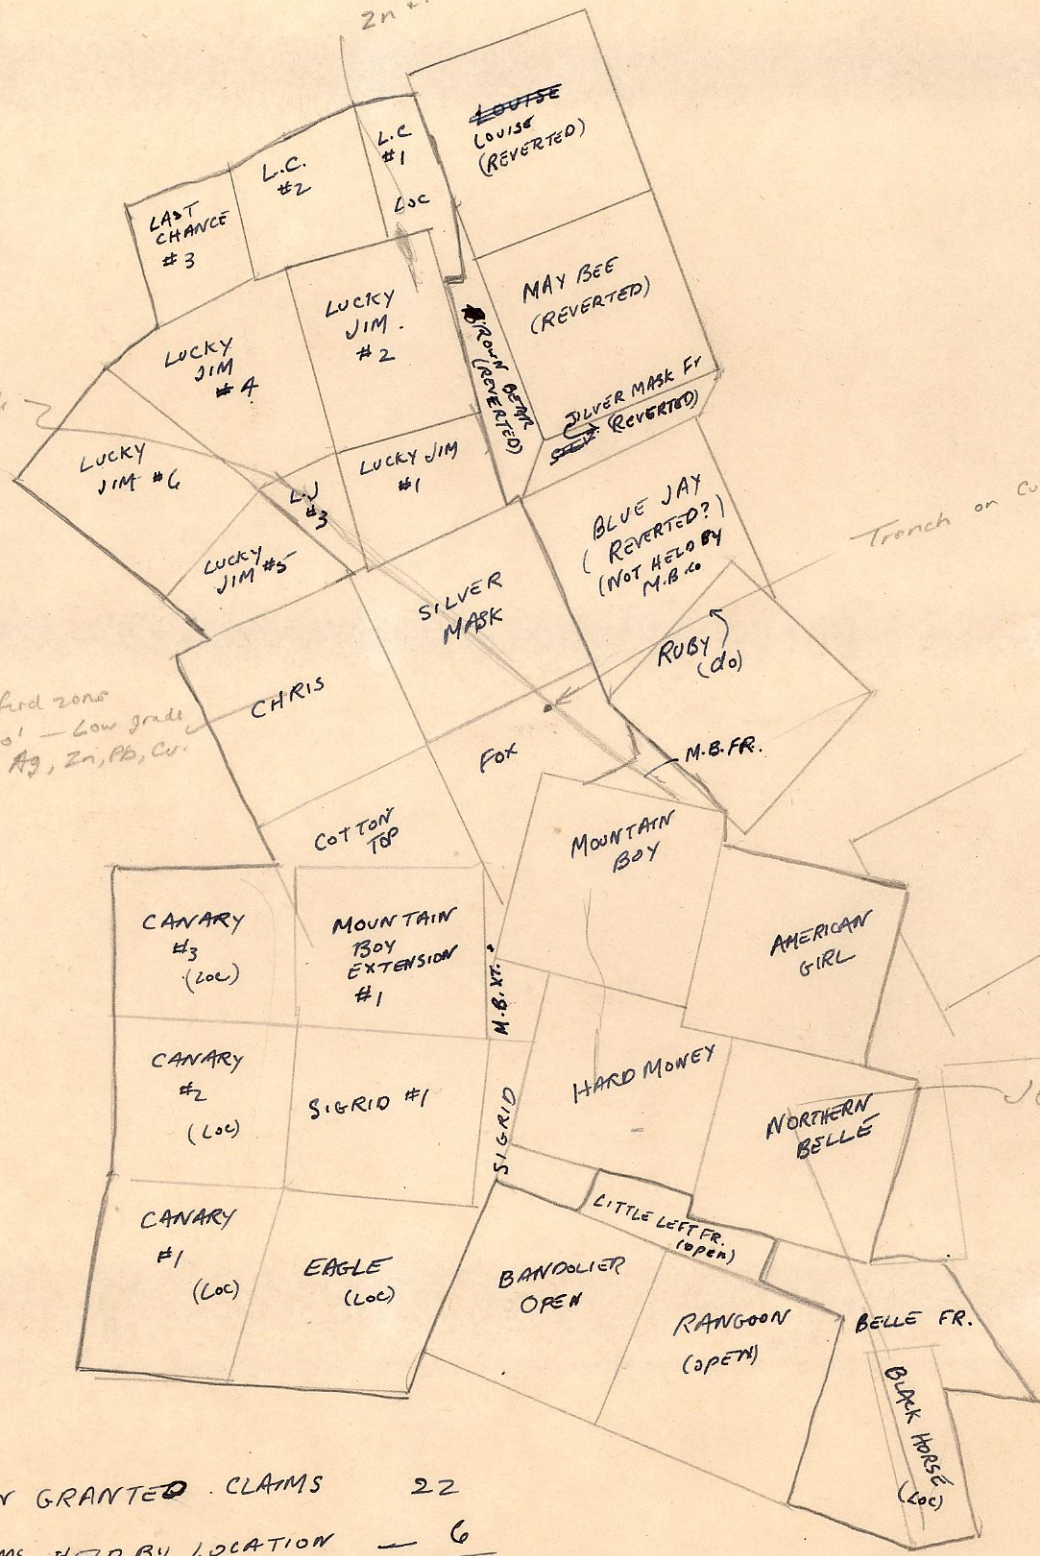 Zn
LOUISE
LOUISE
(REVERTED)
L.C
#1
LOC
L.C.
#2
LAST
CHANCE
#3
MAY BEE
(REVERTED)
LUCKY
JIM.
#2
LUCKY
JIM
#4
BROWN BEAR
(REVERTED)
SILVER MASK Fr
(REVERTED)
LUCKY
JIM #6
LUCKY JIM
#1
L.J
#3
LUCKY
JIM #5
BLUE JAY
(REVERTED?)
(NOT HELD BY
M.B.Co
Trench on Cu
SILVER
MASK
RUBY
(do)
CHRIS
zone
— Low grade
Ag, Zn, Pb, Cu.
FOX
M.B.FR.
COTTON
TOP
MOUNTAIN
BOY
CANARY
#3
(LOC)
MOUNTAIN
BOY
EXTENSION
#1
M.B.XT.
AMERICAN
GIRL
CANARY
#2
(LOC)
SIGRID #1
SIGRID
HARD MONEY
NORTHERN
BELLE
CANARY
#1
(LOC)
EAGLE
(LOC)
LITTLE LEFT FR.
(open)
BANDOLIER
OPEN
RANGOON
(OPEN)
BELLE FR.
BLACK HORSE
(LOC)
GRANTED CLAIMS 22
HELD BY LOCATION — 6